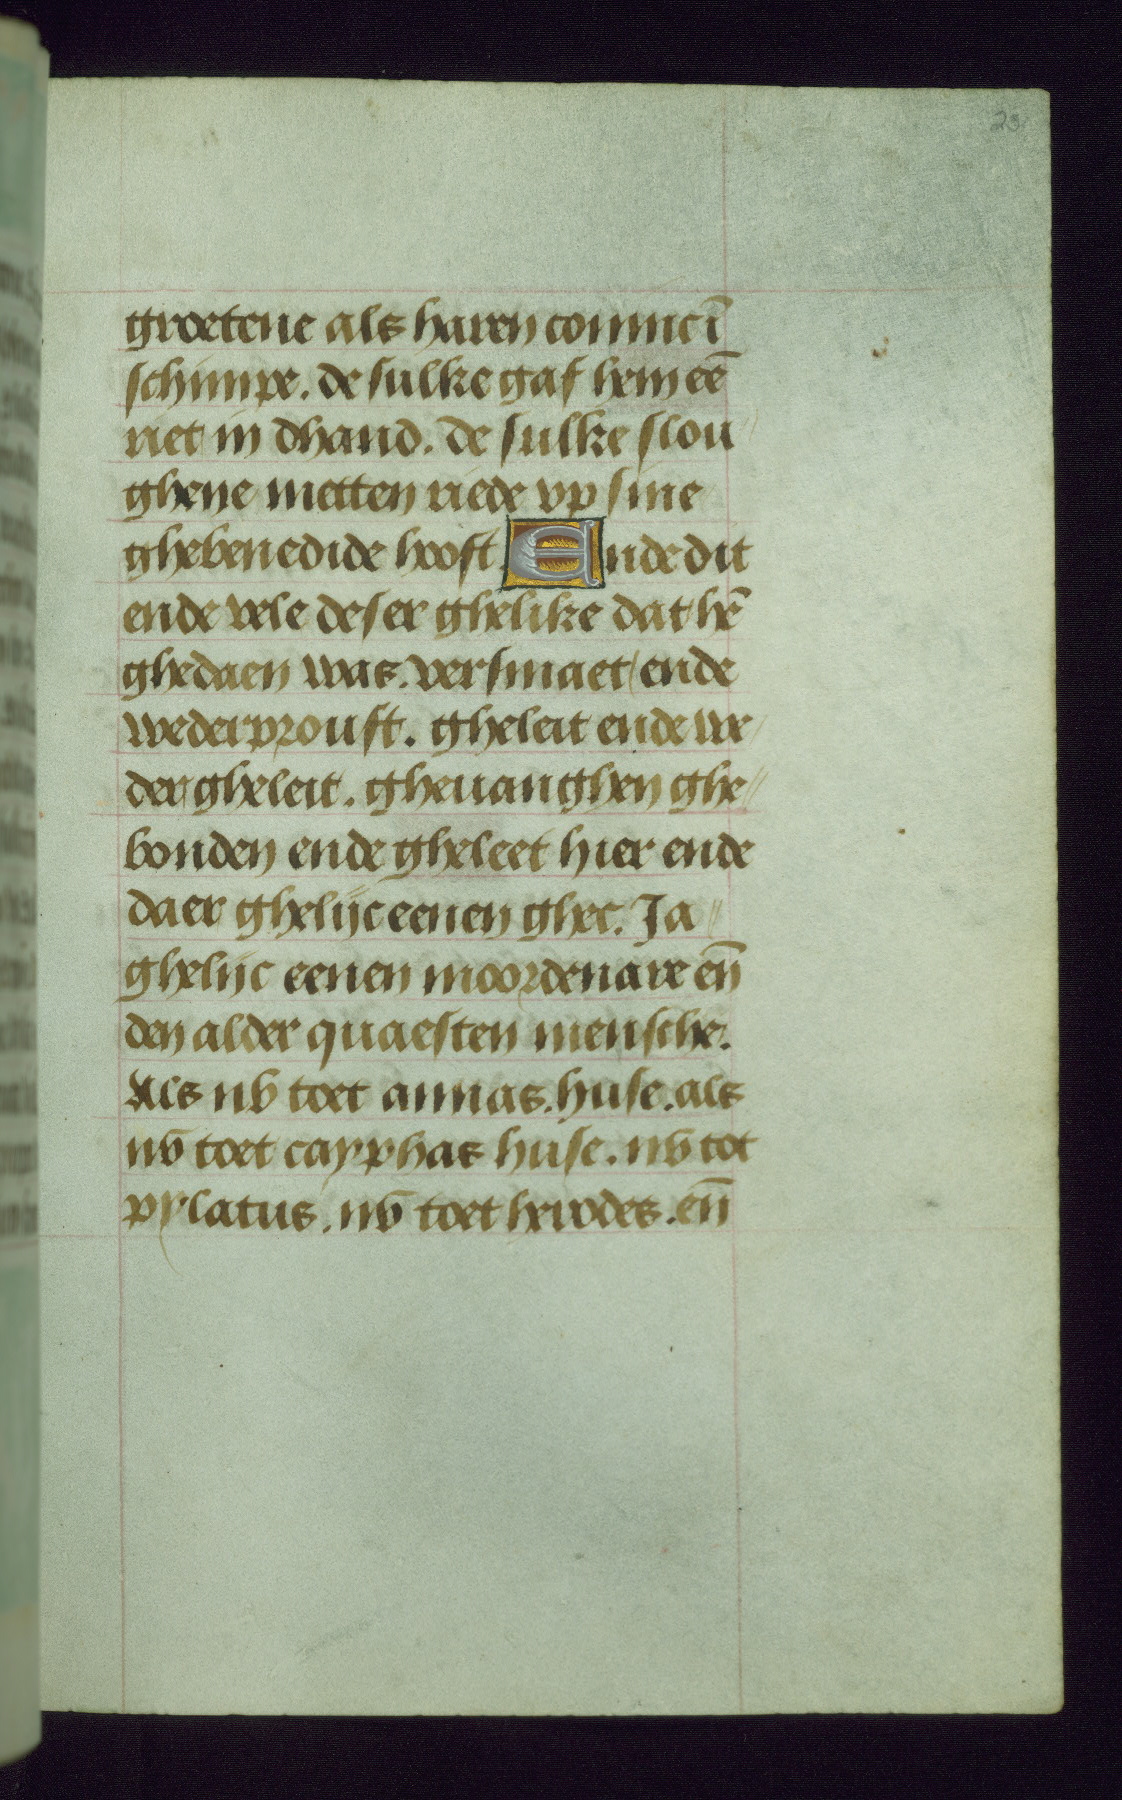 23
groetene als haren coninc ī
schimpe. de sulke gaf hem eē
riet in dhand. de sulke slou
ghene metten riede vp sine
ghebenedide hooft. Ende dit
ende vele deser ghelike dat hē
ghedaen was. versmaet/ ende
wederprouft. gheleit ende we/
der gheleit. gheuanghen ghe//
bonden ende gheleet hier ende
daer ghelijc eenen ghec. Ja //
ghelijc eenen moordenare en̄
den alder quaesten mensche.
Als nv̄ toet annas. huse. als
nv̄ toet cayphas huse. nv̄ tot
pylatus. nv̄ toet herodes. en̄